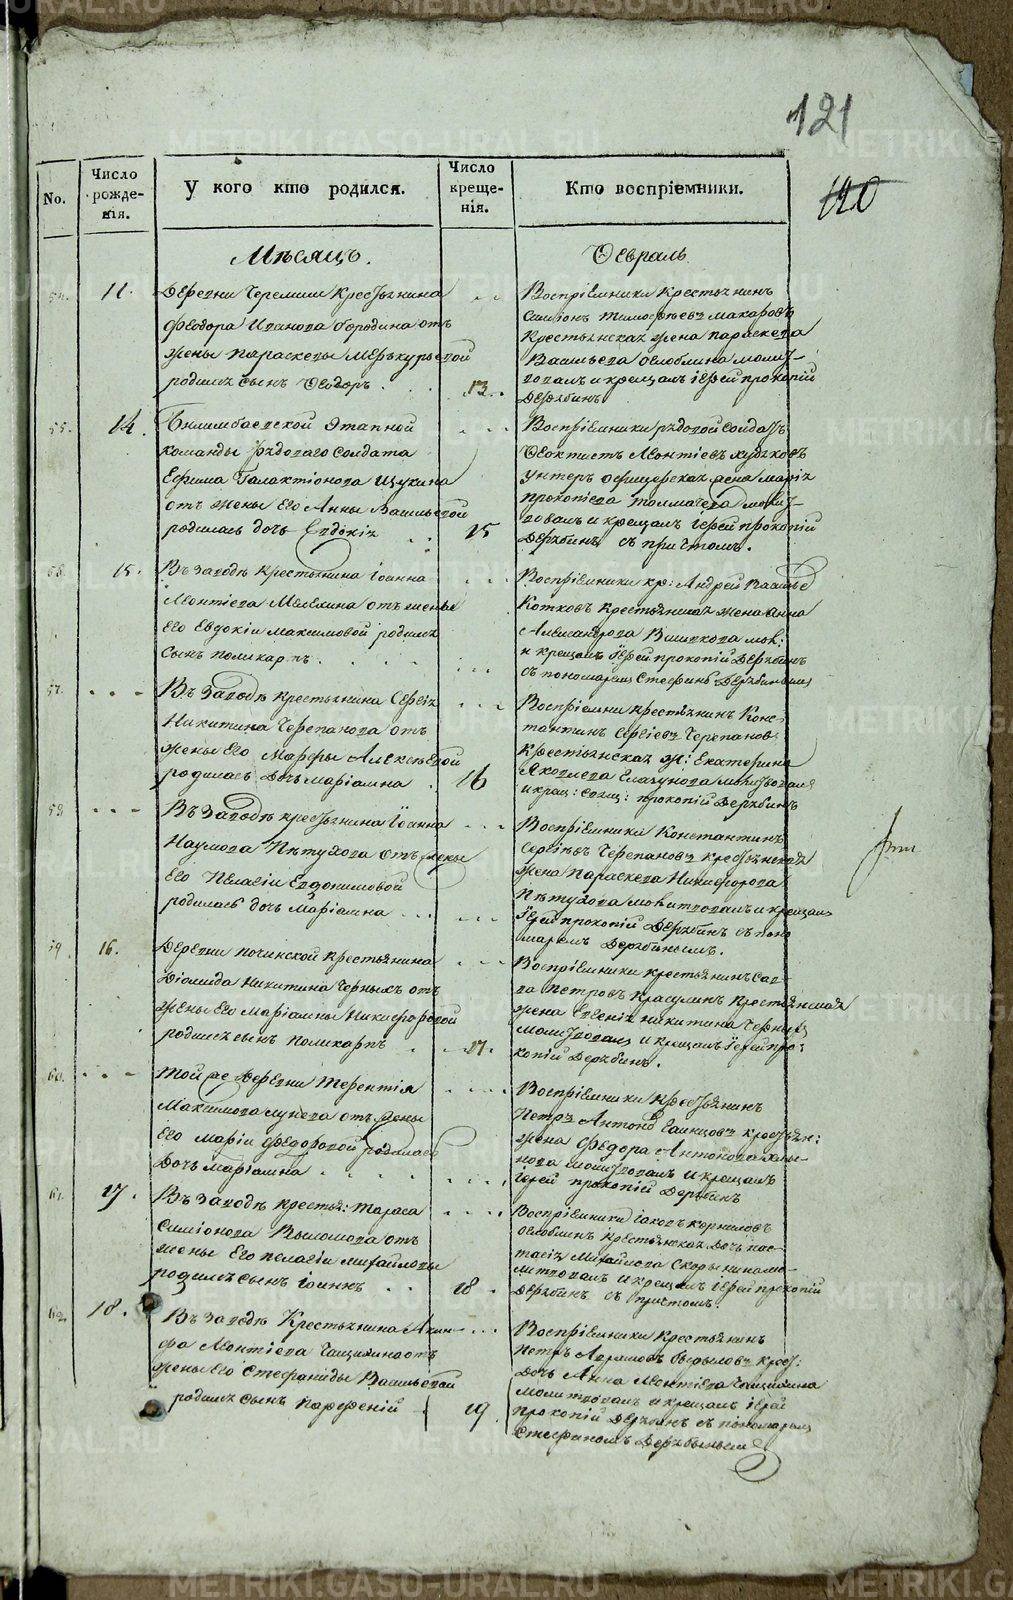 121
120
No.
Число рожде-нія.
У кого кто родился.
Число креще-нія.
Кто воспріемники.
Мѣсяцъ.
Февраль
54. 11. Деревни Черемши Крестьянина
Феодора Иванова Бородина отъ
жены Параскевы Меркурьевой
родился сынъ Феодоръ. 13.
Воспріемники Крестьянинъ
Симіонъ Тимофѣевъ Макаровъ
Крестьянская жена Параскева
Васильева молит-
вовалъ и крещалъ іерей прокопій
Дерябинъ
55. 14. Билимбаевской Этапной
команды рядоваго солдата
Ефима Галактіонова Щукина
отъ жены Его Анны Васильевой
родилась дочь Евдокія 15
Воспріемники рядовой солдатъ
Феоктистъ Леонтіевъ Худяковъ
Унтеръ офицерская жена Марія
Прокопіева Толмачева молит-
вовалъ и крещалъ іерей прокопій
Дерябинъ съ причтомъ.
56. 15. Въ Заводѣ Крестьянина Іоанна
Леонтіева Мелехина отъ жены
Его Евдокіи Максимовой родился
сынъ поликарпъ.
Воспріемники кр: Андрей Василье
Котковъ Крестьянская жена Анна
Александрова мол:
и крещалъ Іерей прокопій Дерябинъ
съ пономаремъ Стефаномъ Дерябинымъ
57. Въ Заводѣ крестьянина Сергія
Никитина Черепанова отъ
жены Его Марфы Алексѣевой
родилась Дочь маріамна 16
Воспріемни крестьянинъ Конс-
тантинъ Сергіевъ Черепановъ
Крестьянская ж: Екатерина
Яковлева Глазунова молитвовалъ
и крещ: свящ: прокопій Дерябинъ
58. Въ Заводѣ крестьянина Іоанна
Наумова Пѣтухова отъ жены
Его Пелагіи Евдокимовой
родилась дочь Маріамна
Воспріемники Константинъ
Сергіевъ Черепановъ крестьянская
жена Параскева Никифорова
Пѣтухова молитвовалъ и крещалъ
Іерей прокопій Дерябинъ съ поно
маремъ Дерябинымъ.
59. 16. Деревни починской Крестьянина
Діомида Никитина Черныхъ отъ
жены Его Маріамны Никифоровой
родился сынъ поликарпъ 17.
Воспріемники крестьянинъ Сав-
ва Петровъ Красулинъ Крестьянская
жена Евгенія Никитина Черныхъ
молитвовалъ и крещалъ Іерей про-
копій Дерябинъ.
60. Той же Деревни Терентія
Максимова отъ жены
Его Маріи Федоровой родилась
Дочь Маріамна
Воспріемники Крестьянинъ
Петръ Антоновъ крестьян:
жена Федора Антонова
молитвовалъ и крещалъ
Іерей прокопій Дерябинъ
61. 17. Въ Заводѣ крестья: Тараса
Симіонова Выломова отъ
жены Его пелагіи Михайловы
родился сынъ Іоаннъ 18.
Воспріемники Іаковъ корниловъ
Крестьянская Дочь нас-
тасія Михайлова Скорынина мо-
литвовалъ и крещалъ іерей прокопій
Дерябинъ съ притомъ.
62. 18. Въ Заводѣ Крестьянина Акин-
фа Леонтіева Чащихина отъ
жены Его Стефаниды Васильевой
родился сынъ Парфеній 19.
Воспріемники Крестьянинъ
Петръ Абрамовъ крес:
Дочь Анна Леонтіева Чащихина
молитвовалъ и крещалъ іерей
прокопій Дерябинъ съ пономаремъ
Стефаномъ Дерябинымъ
METRIKI.GASO-URAL.RU